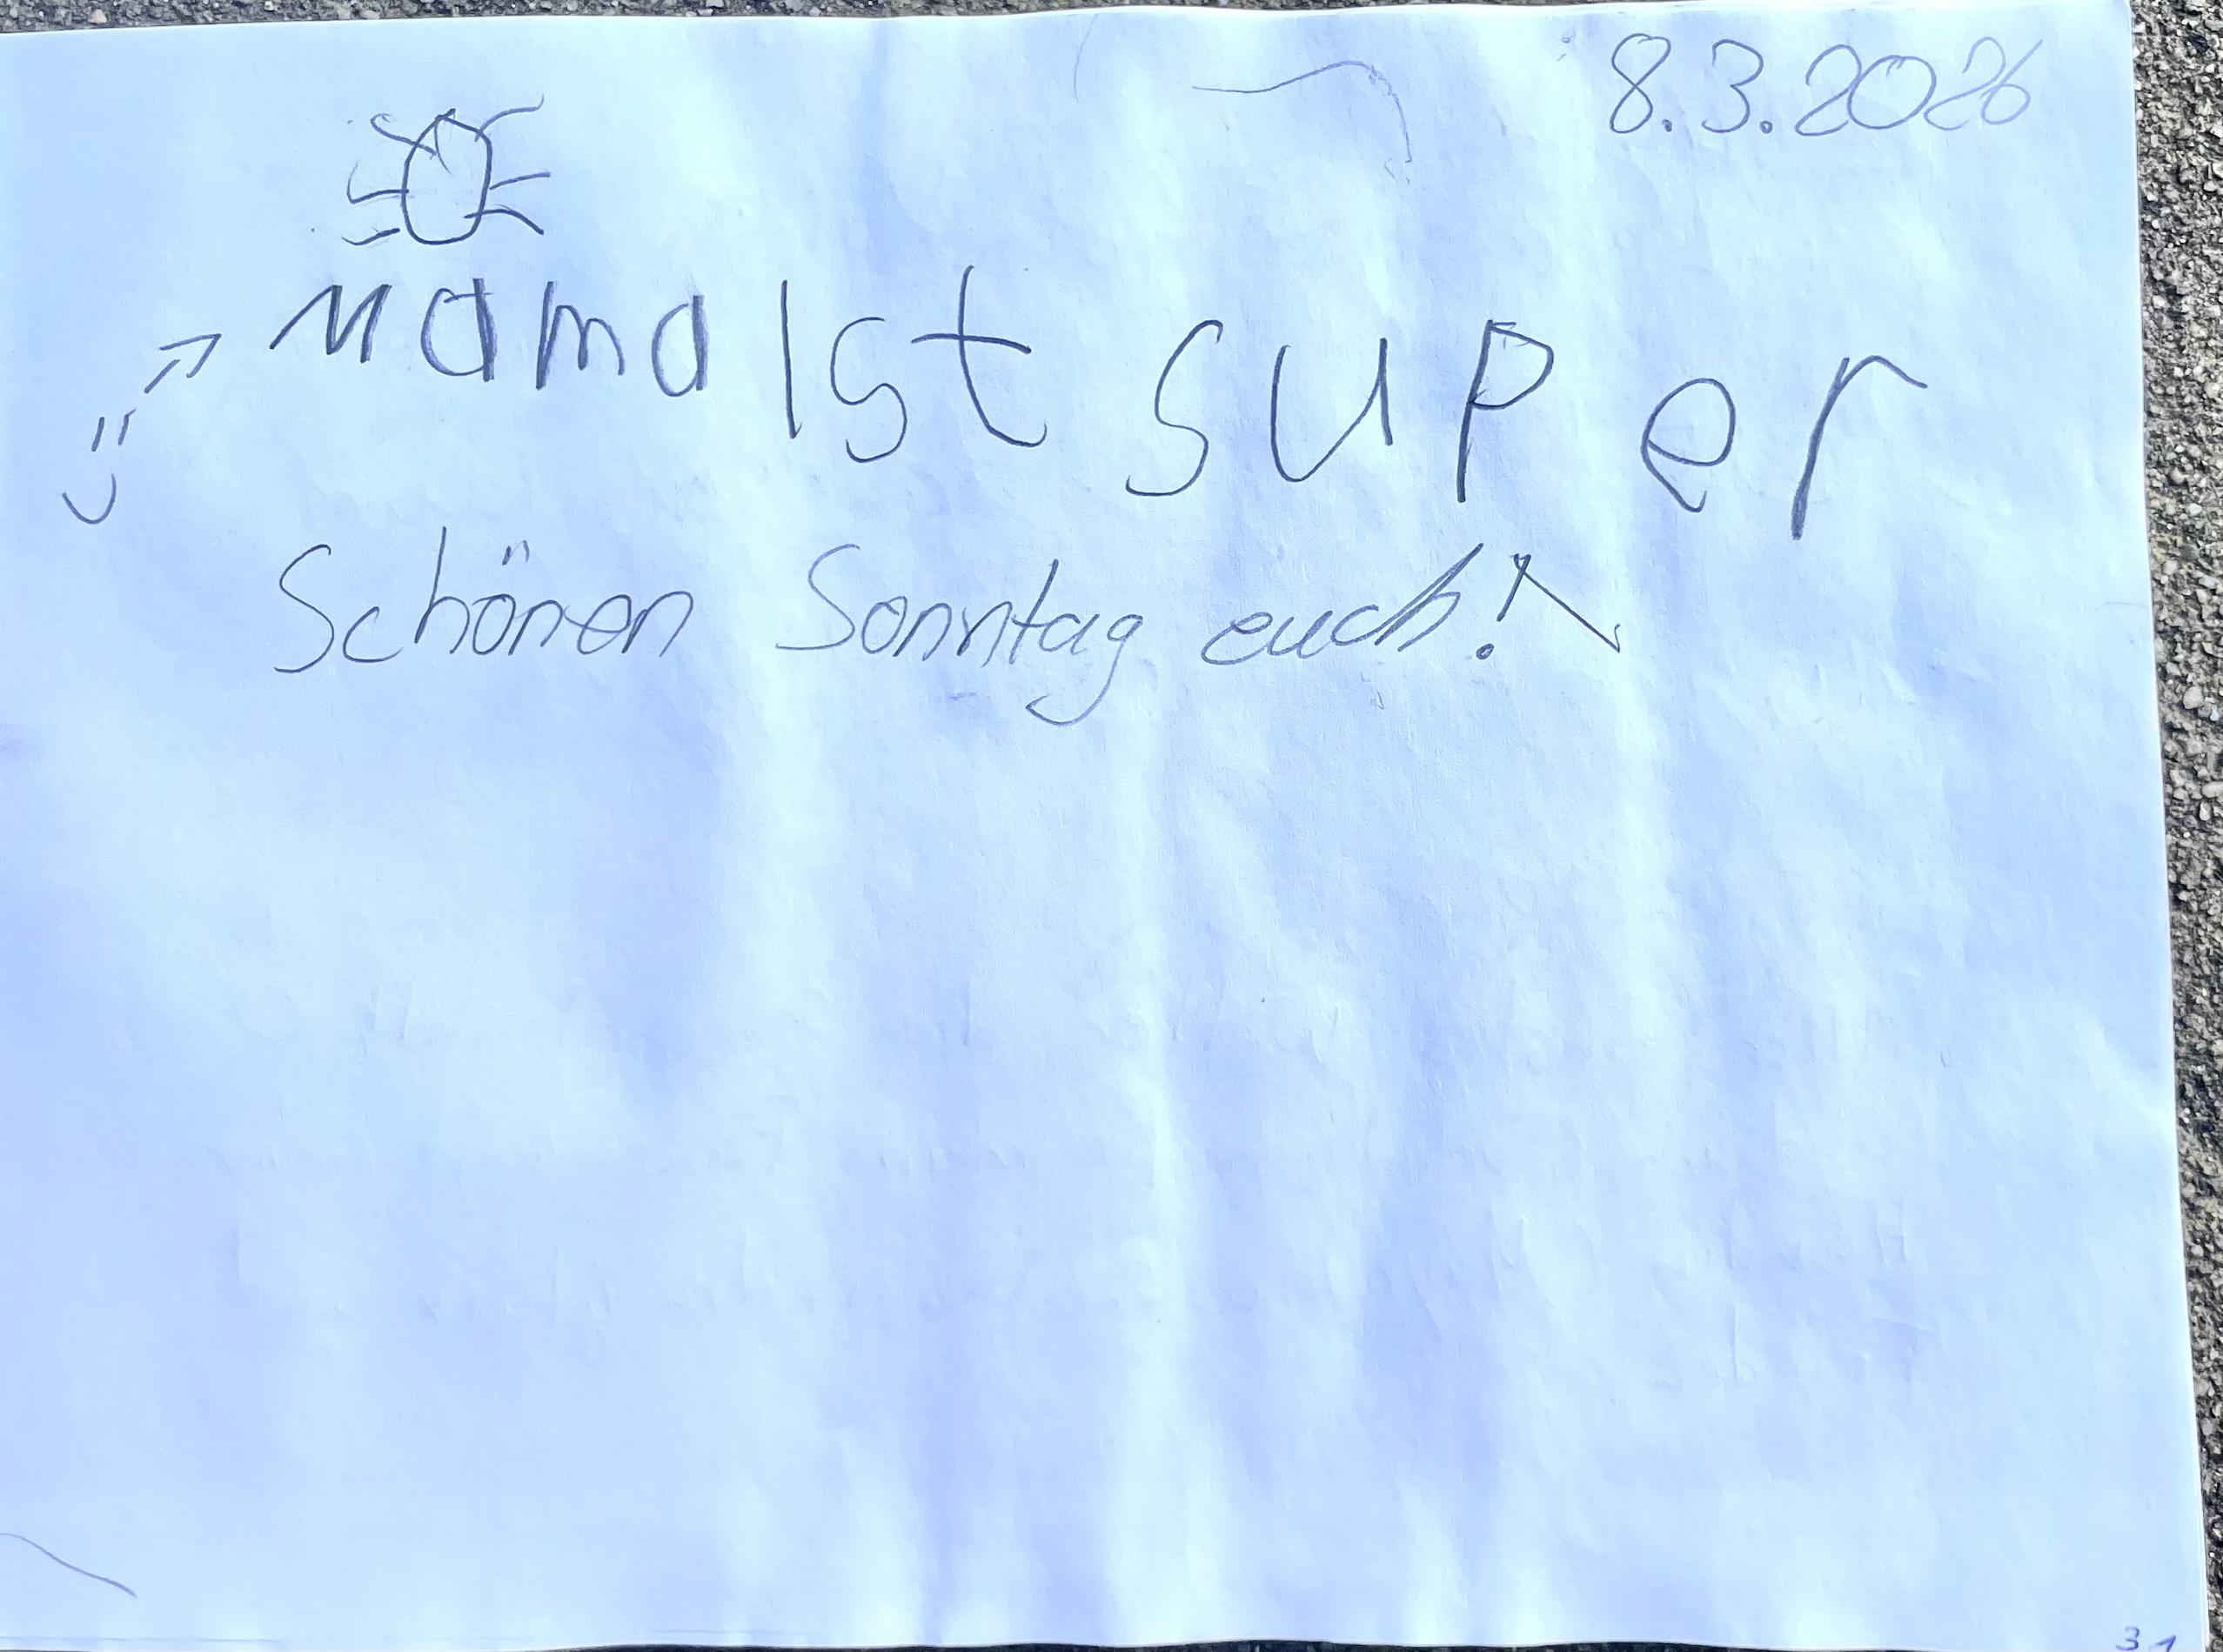 8.3.2026
Mama Ist super
Schönen Sonntag euch!